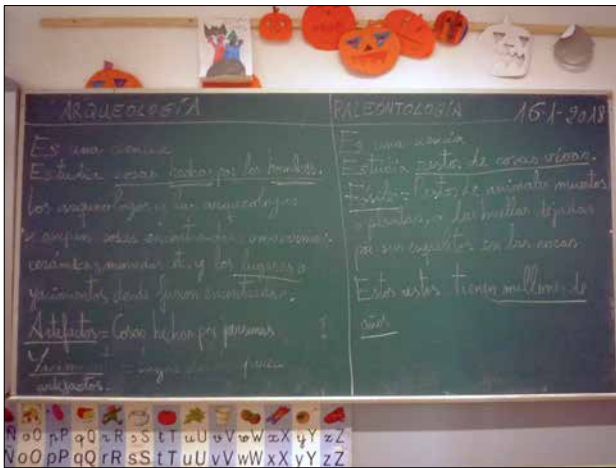 ARQUEOLOGÍA
Es una ciencia
Estudia cosas hechas por los hombres.
Los arqueólogos y las arqueólogas
cosas encontradas
cerámicas, monedas y los lugares o
yacimientos donde fueron encontradas.
Artefactos = Cosas hechas por personas.
artefactos.
PALEONTOLOGÍA 16-1-2018
Es una ciencia
Estudia restos de cosas vivas.
Fósiles = Restos de animales muertos
o plantas, o las huellas dejadas
por sus en las rocas
Estos restos tienen millones de
años
Ñ oO pP qQ rR sS tT uU vV wW xX yY zZ
Ñ oO pP qQ rR sS tT uU vV wW xX yY zZ